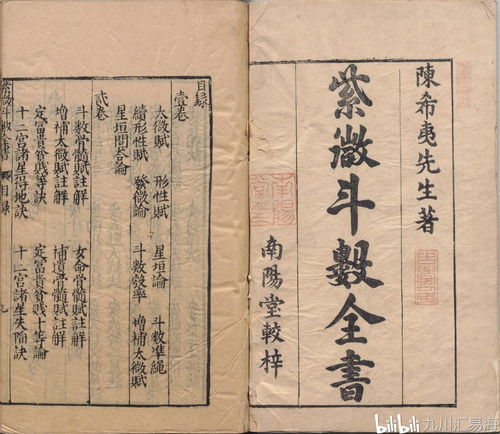 陳希夷先生著
紫微斗數全書
南陽堂較梓
目錄
壹卷
太微賦 形性賦 星垣論 斗數準繩
續形性賦 發微論 斗數率 增補太微賦
星垣問答論
貳卷
斗數骨髓賦註解 女命骨髓賦註解
增補太微賦註解 補遺骨髓賦註解
定富貴貧賤等訣 定富貴貧賤十等論
十二宮諸星得地訣 十二宮諸星失陷訣
紫微斗數全書 目錄
bilibili 九川汇易海